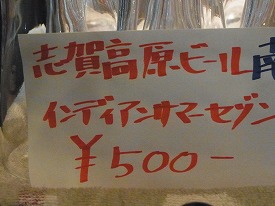 志賀高原ビール南
インディアンサマーセゾン
¥500-